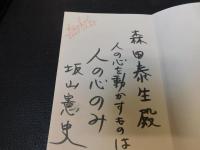 森田泰生殿
人の心を動かすものは
人の心のみ
坂山憲史